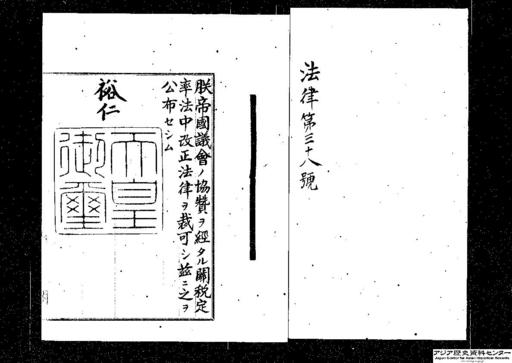 法律第三十八號
朕帝國議會ノ協贊ヲ經タル關税定
率法中改正法律ヲ裁可シ茲ニ之ヲ
公布セシム
裕仁
天皇
御璽
アジア歴史資料センター
Japan Center for Asian Historical Records